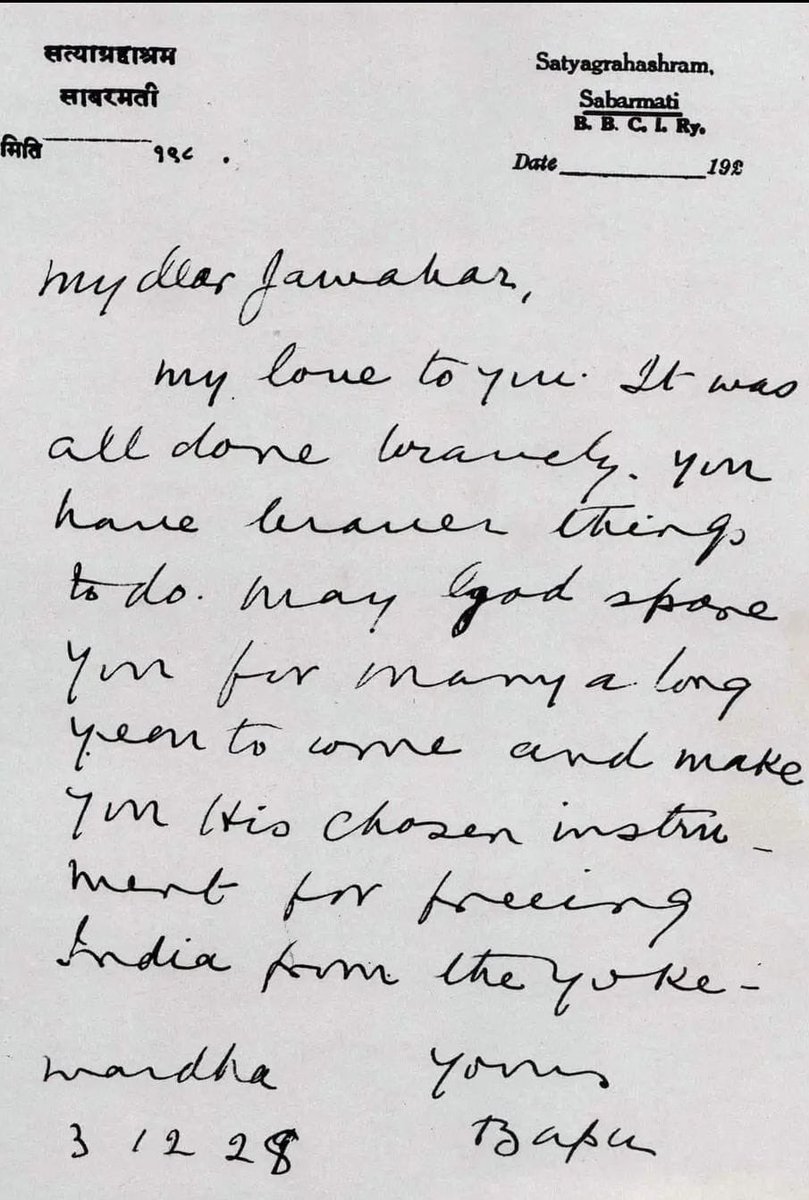 सत्याग्रहाश्रम
साबरमती
मिति १९८ .
Satyagrahashram,
Sabarmati
B. B. C. I. Ry.
Date 192
My dear Jawahar,
My love to you. It was
all done bravely. You
have braver things
to do. May God spare
you for many a long
year to come and make
you His chosen instru-
ment for freeing
India from the yoke -
Wardha Yours
3 12 28 Bapu